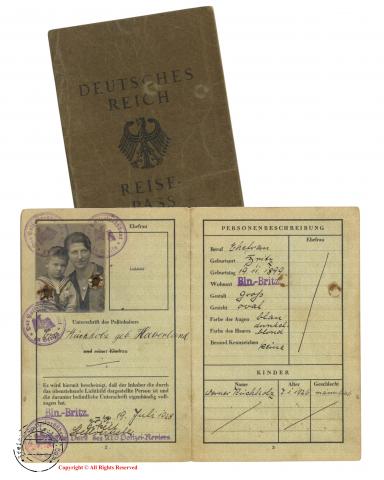 DEUTSCHES
REICH
REISE-
PASS
Ehefrau
Lichtbild
Unterschrift des Paßinhabers
Küchholz geb Haberland
und seiner Ehefrau
Es wird hiermit bescheinigt, daß der Inhaber die durch
das obenstehende Lichtbild dargestellte Person ist und
die darunter befindliche Unterschrift eigenhändig voll-
zogen hat.
Bln-Britz, 19. Juli 1928
des 220 Polizei-Reviers
2
PERSONENBESCHREIBUNG
Ehefrau
Beruf Ehefrau
Geburtsort Britz
Geburtstag 19.11.1899
Wohnort Bln-Britz.
Gestalt groß
Gesicht oval
Farbe der Augen blau
Farbe des Haares dunkelblond
Besond. Kennzeichen keine
KINDER
Name Alter Geschlecht
Werner Küchholz
3
Copyright © All Rights Reserved